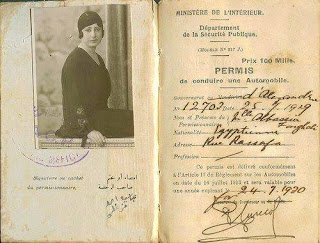 OFFICI
Signature ou cachet
du permissionnaire
امضاء أو ختم
صاحب الرخصة
MINISTÈRE DE L'INTÉRIEUR.
Département
de la Sécurité Publique.
Prix 100 Mills.
PERMIS
de conduire une Automobile.
Gouvernorat d'Alexandrie
N° 12703 Date 25.7.1929
Nom et Prénoms du Mlle Abassia
Nationalité Egyptienne
Adresse Rue Rassafa
Profession
Ce permis est délivré conformément
à l'Article 17 du Règlement sur les Automobiles
en date du 16 juillet 1913 et sera valable pour
une année expirant le 24.7.1930